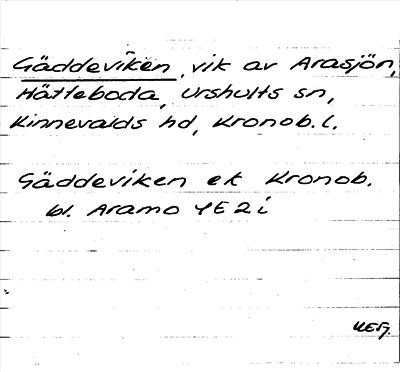 Gäddeviken, vik av Arasjön,
Hätteboda, Urshults sn,
Kinnevalds hd, Kronob. l.
Gäddeviken ek Kronob.
bl. Aramo 4E2i